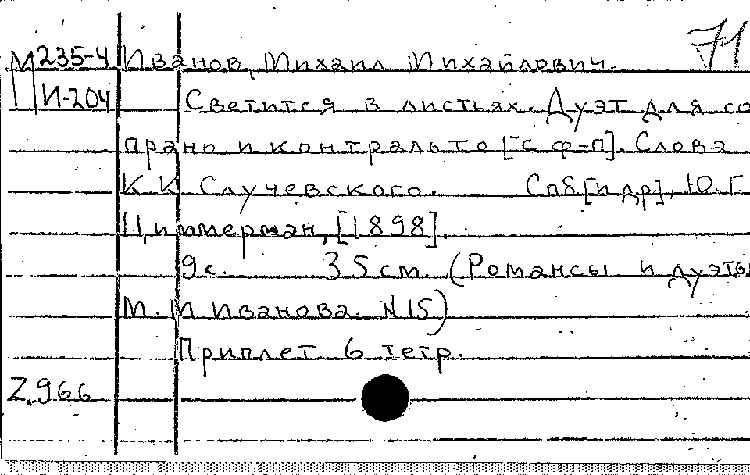 71
М 235-4 Иванов, Михаил Михайлович.
И-204 Светится в листьях. Дуэт для со
прано и контральто [с ф-п]. Слова
К.К. Случевского. Спб [и др], Ю.Г.
Циммерман, [1898].
9 с. 35 см. (Романсы и дуэты
М. М Иванова. N 15)
Приплет. 6 тетр.
Z.966